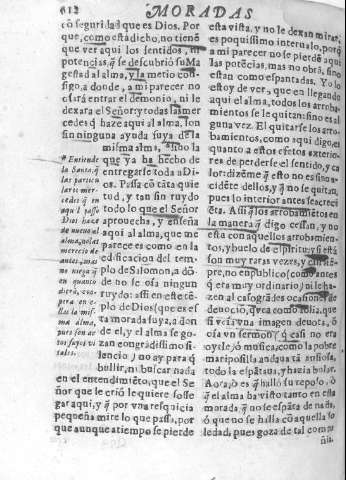 612 MORADAS
cō seguridad que es Dios. Por
que, como está dicho, no tienē
que ver aquí los sentidos, ni
potencias, q̄ se descubrió su Ma
gestad al alma, y la metio con
sigo, a donde, a mi parecer no
osará entrar el demonio, ni le
dexara el Señor: y todas las mer
cedes q̄ haze aquí al alma,
sin ninguna ayuda suya de la
misma alma, sino la
que ya ha hecho de
entregarse toda a Di
os. Passa cō tāta quie
tud, y tan sin ruydo
todo lo que el Señor
aprouecha, y enseña
aquí al alma, que me
parece es como en la
edificacion del tem
plo de Salomon, a dō
de no se oía ningun
ruydo: assi en este tē
plo de Dios (que es es
ta morada suya, a don
de el, y el alma se go
zan con grādissimo si
lencio) no ay para q̄
bullir, ni buscar nada
en el entendimiēto, que el Se
ñor que le crió le quiere sosse
gar aquí, y q̄ por vna resquicia
pequeña mire lo que passa, por
que aunque a tiempo se pierde
* Entiende
la Santa, q̄
las particu
lares mer
cedes q̄ en
aquí passa
Dios haze
de nueuo al
alma, no las
merecio de
antes, mas
no niega q̄
en quanto
dicen, coo
pera en e-
llas la mis-
ma alma,
pues son ac
tos suyos vi
tales.
esta vista, y no le dexan mirar,
es poquissimo interualo, porq̄
a mi parecer no se pierde aquí
las potēcias, mas no obrā, sino
estan como espantadas. Y o lo
estoy de ver, que en llegando
aquí el alma, todos los arroba
mientos se le quitan: sino es al
guna vez. El quitarse los arro
bamientos, como aquí digo, es
quanto a estos efetos exterio
res de perderse el sentido, y ca
lor: dizēme q̄ esto no es sino ac
cidēte dellos, y q̄ no se quitan,
pues lo interior antes se acreciē
ta. Assi q̄ los arrobamiētos en
la manera q̄ digo cessan, y no
està con aquellos arrobamien
tos, y buelo de espiritu: y si está
son muy raras vezes, y
pre, no en publico (como antes
q̄ era muy ordinario) ni le ha-
zen al caso grādes ocasiones de
deuoció, q̄ vea como solia, que
si veía vna imagen deuota, ò
oía vn sermon (q̄ casi no era
oyrle) ò musica, como la pobre
mariposilla andaua tā ansiosa,
todo la espātaua, y hazia bolar.
Aora, ò es q̄ halló su reposo, ò
q̄ el alma ha visto tanto en esta
morada, q̄ no se espāta de nada,
ó que no se halla cō aquella so
ledad, pues goza de tal compa
ñía